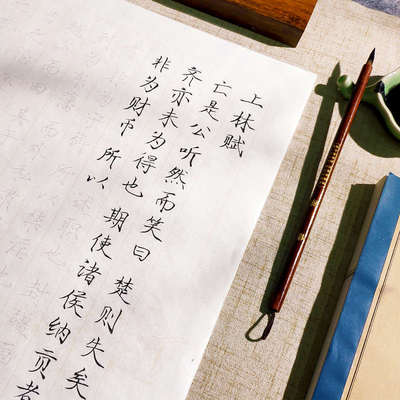 上林赋
亡是公听然而笑曰 楚则失矣
齐亦未为得也 期使诸侯纳贡者
非为财币 所以